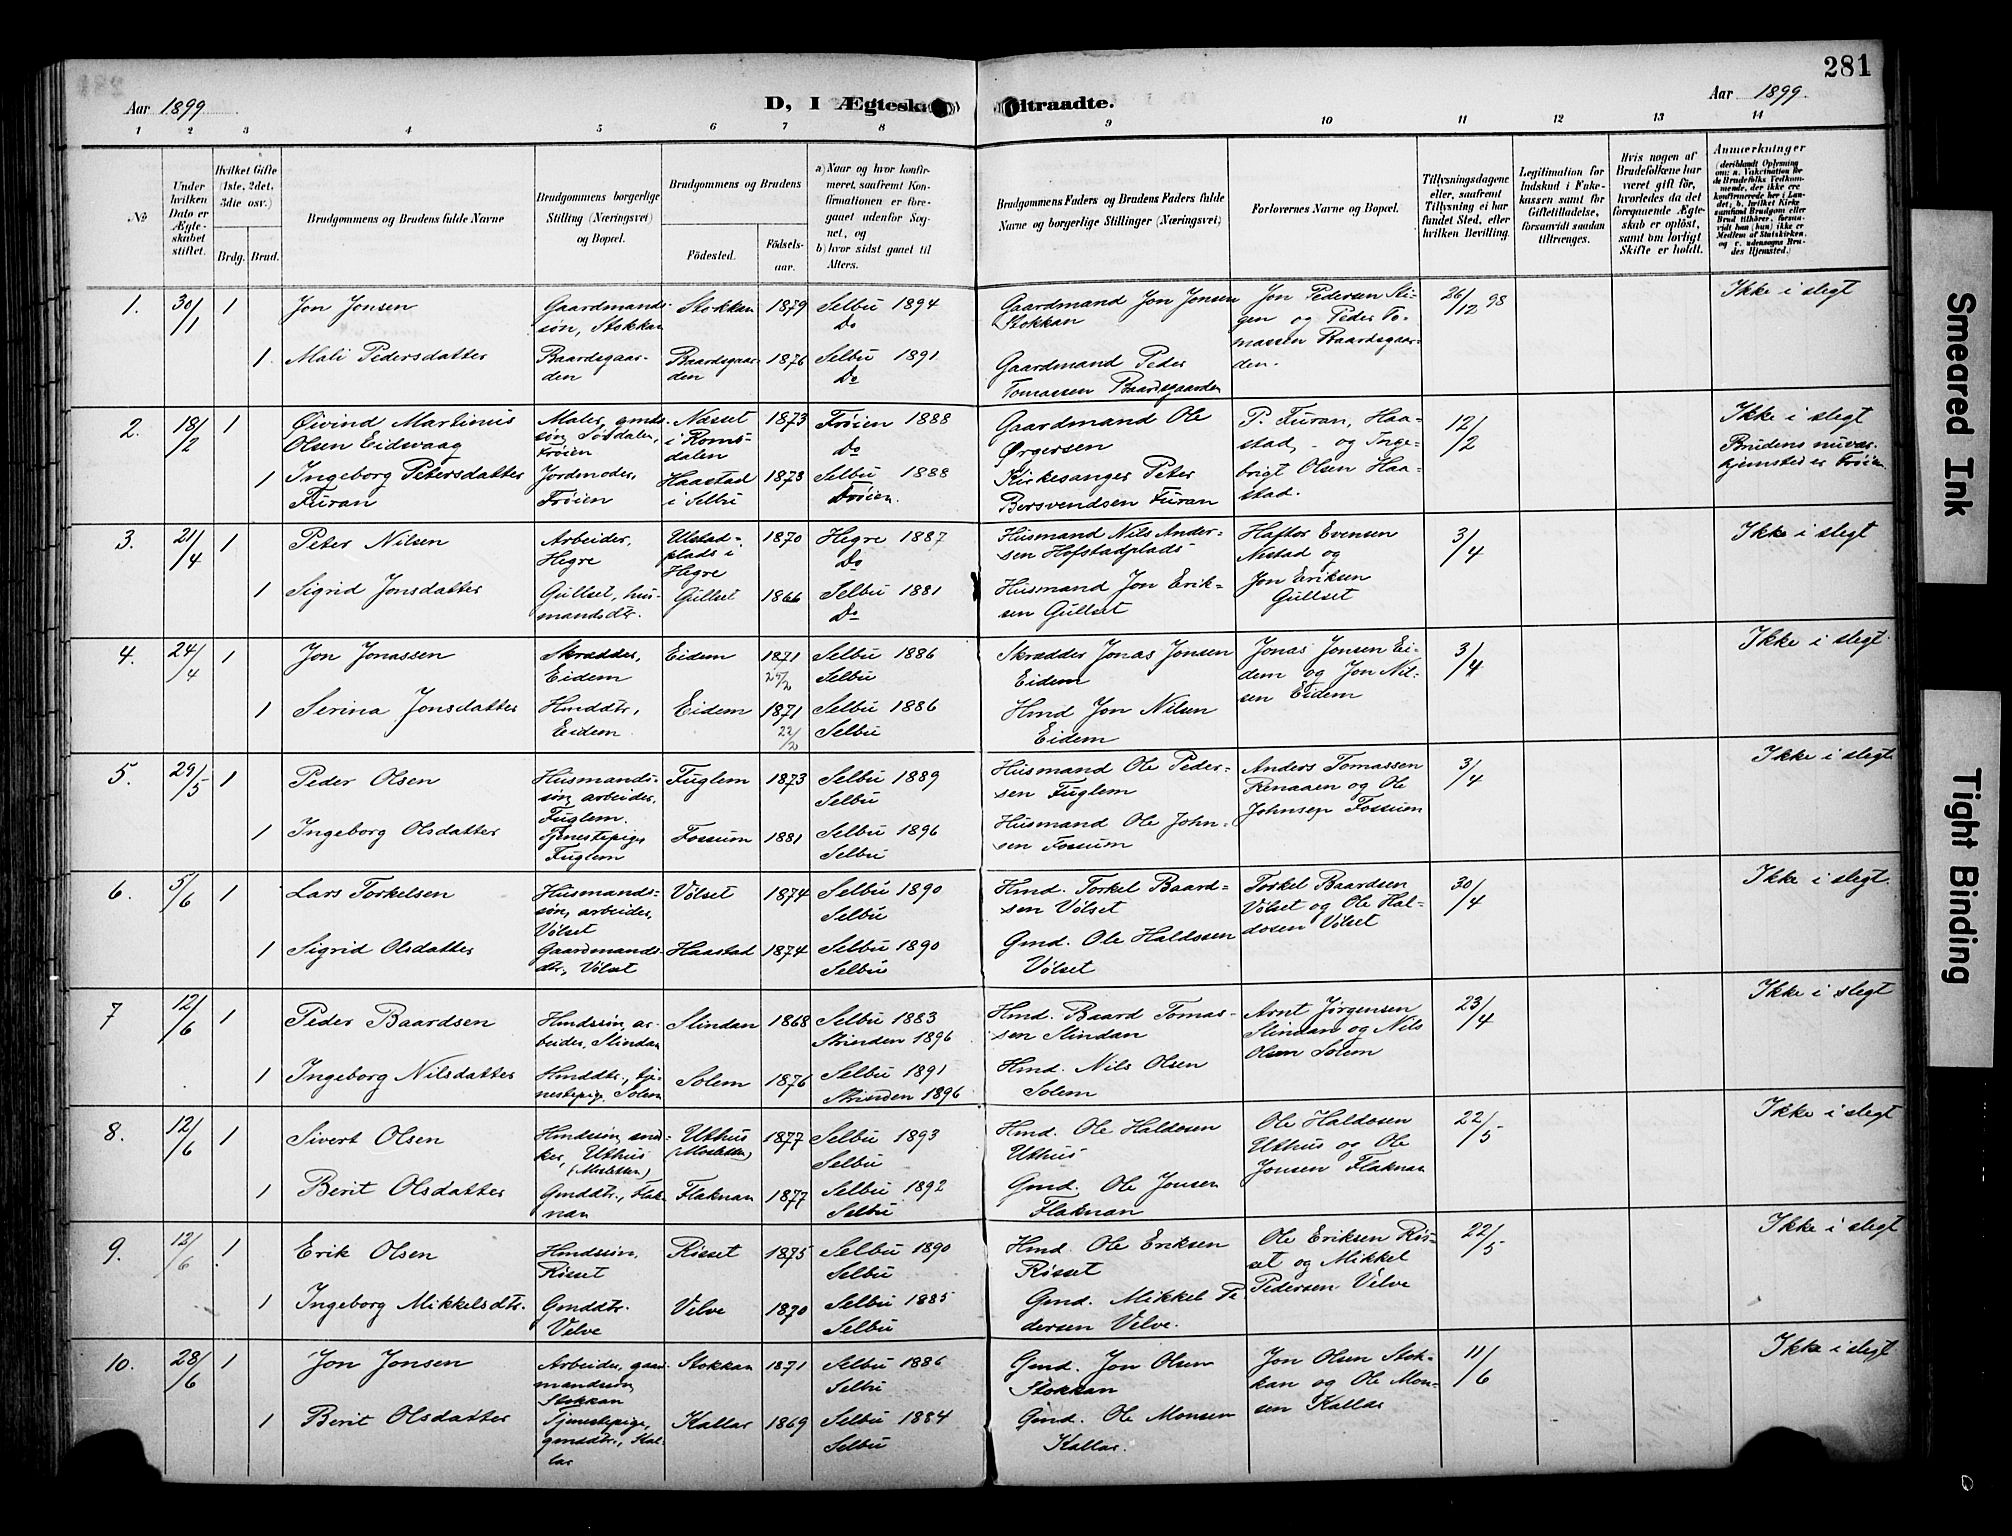 281
Aar 1899.
D, I Ægtesk
iltraadte.
Aar 1899.
1 2 3 4 5 6 7 8 9 10 11 12 13 14
№
Under hvilken Dato er Ægteskabet stiftet.
Hvilket Gifte (1ste, 2det, 3die osv.)
Brdg. Brud.
Brudgommens og Brudens fulde Navne
Brudgommens borgerlige Stilling (Næringsvei) og Bopæl.
Brudgommens og Brudens
Födested.
Födselsaar.
a) Naar og hvor konfirmeret, saafremt Konfirmationen er foregaaet udenfor Sognet, og
b) hvor sidst gaaet til Alters.
Brudgommens Faders og Brudens Faders fulde Navne og borgerlige Stillinger (Næringsvei)
Forlovernes Navne og Bopæl.
Tillysningsdagene eller, saafremt Tillysning ei har fundet Sted, efter hvilken Bevilling.
Legitimation for Indskud i Enkekassen samt for Giftetilladelse, forsaavidt saadan tiltrænges.
Hvis nogen af Brudefolkene har været gift för, hvorledes da det foregaaende Ægteskab er oplöst, samt om lovligt Skifte er holdt.
Anmerkninger
(deriblandt Oplysning om: a. Vakcination for de Brudefolks Vedkommende, der ikke ere konfirmerede her i Landet; b. hvilket Kirkesamfund Brudgom eller Brud tilhörer, forsaavidt han (hun) ikke er Medlem af Statskirken, og c. udensogns Brudes Hjemsted.)
1. 30/1 1 Jon Jonsen
Gaardmandssøn, Stokkan
Stokkan 1879 Selbu 1894
Do
Gaardmand Jon Jonsen
Stokkan
Jon Pedersen Stigen og Peder Tomassen Baardsgaarden.
26/12 98
Ikke i slegt
1. Mali Pedersdatter
Baardsgaarden
Baardsgaarden 1876 Selbu 1891
Do
Gaardmand Peder
Tomassen Baardsgaarden
2. 18/2 1 Øivind Martinus
Olsen Eidsvaag
Næsset i Romsdalen 1873 Frøien 1888
Do
Gaardmand Ole
Ørgersen
P. Furan, Haastad, og Ingebrigt Olsen Haastad.
12/2
Ikke i slegt
Brudens nuvær. hjemsted er Frøien
1 Ingeborg Petersdatter
Furan
Jordmoder,
Frøien
Haastad
i Selbu
1873 Selbu 1888
Frøien.
Kirkesanger Peter
Bersvendsen Furan
3. 21/4 1 Peter Nilsen
Arbeider,
Hegre
Ulstadplads i
Hegre
1870 Hegre 1887
Do
Husmand Nils Andersen Hofstadplads
Haftor Evensen
Nestad og
Jon Eriksen
Gullset
3/4
Ikke i slegt
1 Sigrid Jonsdatter
Gullset, husmandsdtr.
Gullset 1866 Selbu 1881
Do
Husmand Jon Eriksen Gullset
4. 24/4 1 Jon Jonassen
Skrædder,
Eidem
Eidem 1871
25/2
Selbu 1886
Selbu
Skrædder Jonas Jonsen
Eidem
Jonas Jonsen Eidem og Jon Nilsen Eidem
3/4
Ikke i slegt.
1 Serina Jonsdatter
Hmddtr.,
Eidem
Eidem 1871
22/2
Selbu 1886
Selbu
Hmd Jon Nilsen
Eidem
5. 29/5 1 Peder Olsen
Husmandssøn, arbeider,
Fuglem.
Fuglem 1873 Selbu 1889
Selbu
Husmand Ole Pedersen Fuglem
Anders Tomassen
Renaaen og Ole
Johnsen Fossum
3/4
Ikke i slegt
1 Ingeborg Olsdatter
Tjenestepige,
Fuglem
Fossum 1881 Selbu 1896
Selbu
Husmand Ole Johnsen Fossum
6. 5/6 1 Lars Torkelsen
Husmandssøn, arbeider,
Vølset
Vølset 1874 Selbu 1890
Selbu
Hmd. Torkel Baardsen Vølset
Torkel Baardsen
Vølset og Ole Haldosen Vølset
30/4
Ikke i slegt.
1 Sigrid Olsdatter
Gaardmandsdtr., Vølset
Haastad 1874 Selbu 1890
Selbu
Gmd. Ole Haldosen
Vølset
7 12/6 1 Peder Baardsen
Hmdssøn, arbeider, Slindan
Slindan 1868 Selbu 1883
Strinden 1896
Hmd. Baard Tomassen Slindan
Arnt Jørgensen
Slindan og Nils
Olsen Solem
23/4
Ikke i slegt
1 Ingeborg Nilsdatter
Hmddtr., tjenestepige, Solem
Solem 1876 Selbu 1891
Strinden 1896
Hmd. Nils Olsen
Solem
8. 12/6 1 Sivert Olsen
Hmdssøn, snedker, Uthus
(Mosletten)
Uthus
(Mosletten)
1877 Selbu 1893
Selbu
Hmd. Ole Haldosen
Uthus
Ole Haldosen
Uthus og Ole
Jonsen Flaknan
22/5
Ikke i slegt
1 Berit Olsdatter
Gmddtr., Flaknan
Flaknan 1877 Selbu 1892
Selbu
Gmd. Ole Jonsen
Flaknan
9. 12/6 1 Erik Olsen
Hmdssøn,
Røsset
Røsset 1875 Selbu 1890
Selbu
Hmd. Ole Eriksen
Røsset
Ole Eriksen Røsset og Mikkel
Pedersen Velve
22/5
Ikke i slegt
1 Ingeborg Mikkelsdtr.
Gmddtr.
Velve
Velve 1870 Selbu 1885
Selbu
Gmd. Mikkel Pedersen Velve.
10. 28/6 1 Jon Jonsen
Arbeider, gaardmandssøn,
Stokkan
Stokkan 1871 Selbu 1886
Selbu
Gmd. Jon Olsen
Stokkan
Jon Olsen Stokkan og Ole Monsen Kallar
11/6
Ikke i slegt
1 Berit Olsdatter
Tjenestepige,
gmddtr., Kallar
Kallar 1869 Selbu 1884
Selbu
Gmd. Ole Monsen
Kallar.
Smeared Ink
Tight Binding